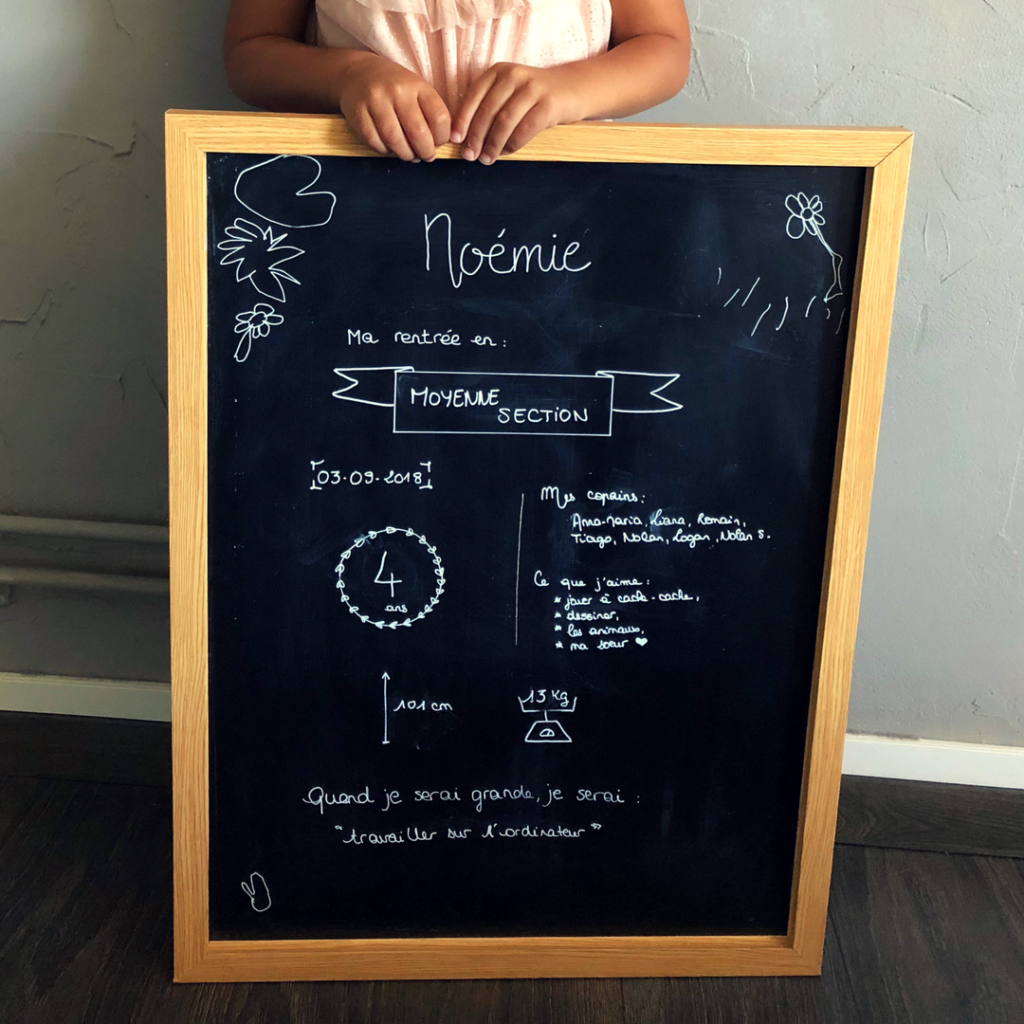 Noémie
Ma rentrée en :
MOYENNE
SECTION
03-09-2018
4
ans
Mes copains :
Anna-Maria, Liana, Romain,
Tiago, Nolan, Logan, Nolan S.
Ce que j'aime :
* jouer à cache-cache,
* dessiner,
* les animaux,
* ma soeur ❤
101 cm
13 Kg
Quand je serai grande, je serai :
"travailler sur l'ordinateur"